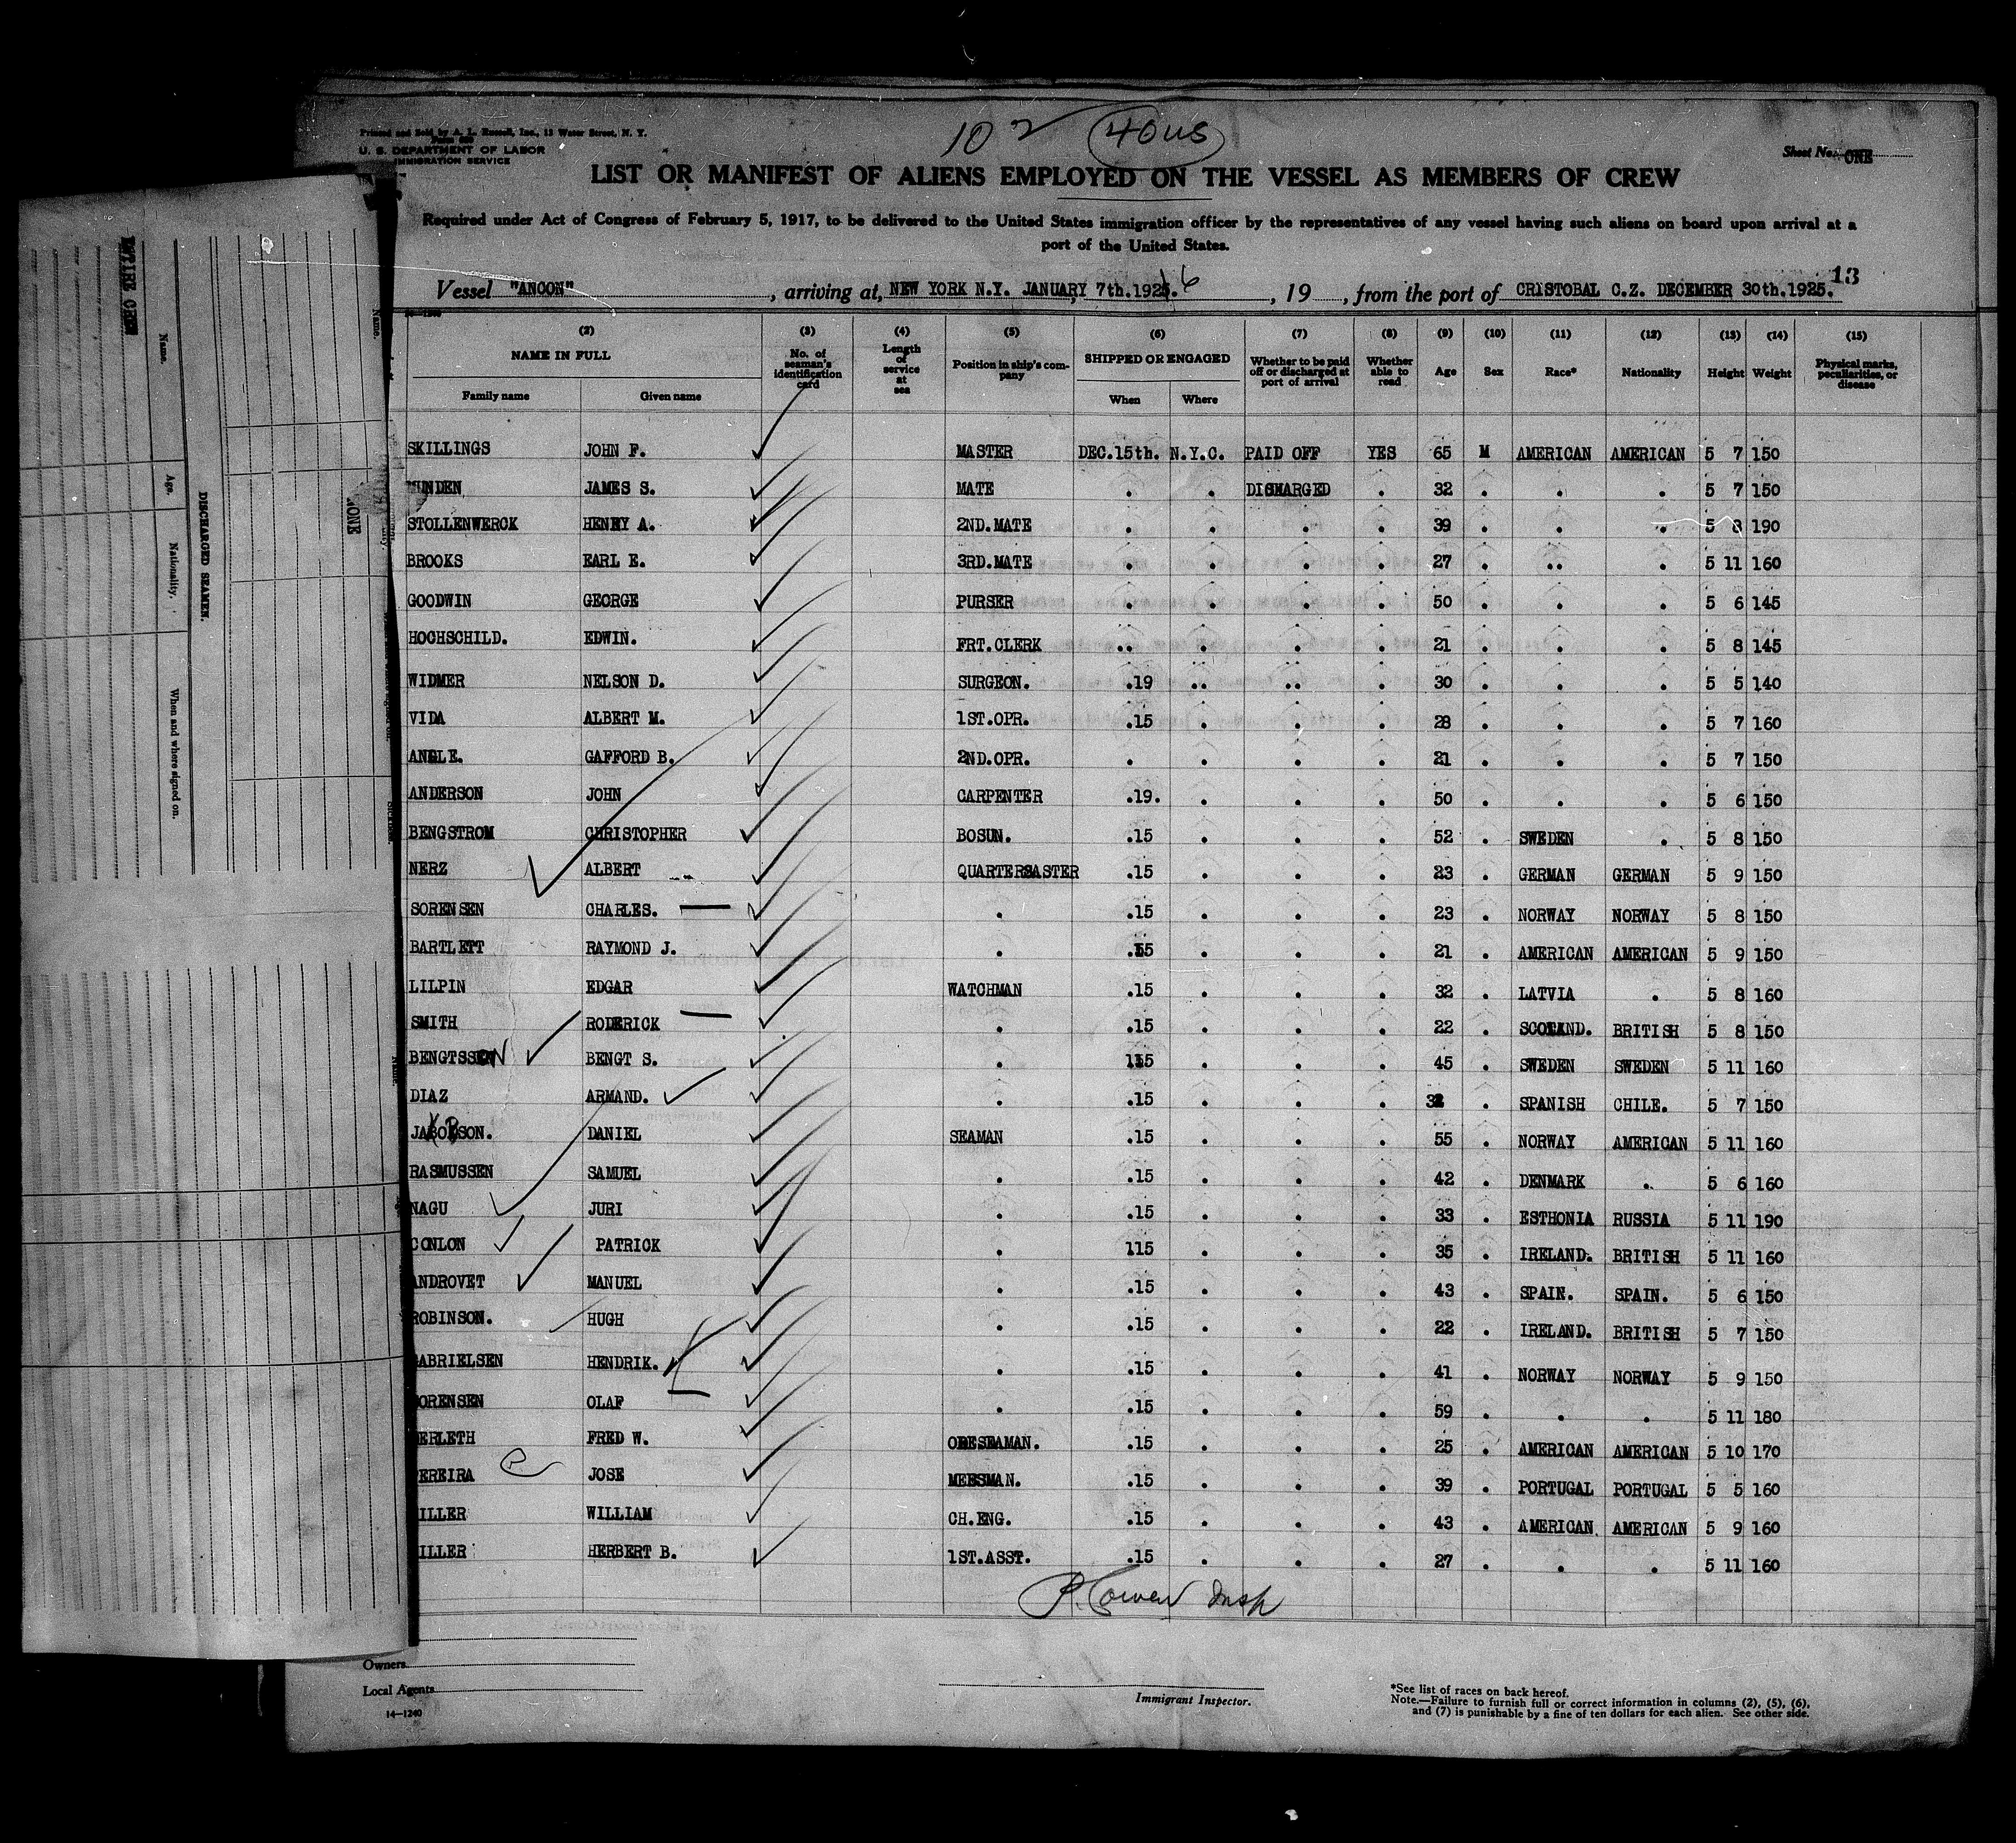 Printed and Sold by A. L. Russell, Inc., 13 Water Street, N. Y.
U. S. DEPARTMENT OF LABOR
IMMIGRATION SERVICE
102 40 us
Sheet No. ONE
LIST OR MANIFEST OF ALIENS EMPLOYED ON THE VESSEL AS MEMBERS OF CREW
Required under Act of Congress of February 5, 1917, to be delivered to the United States immigration officer by the representatives of any vessel having such aliens on board upon arrival at a
port of the United States.
13
Vessel "ANCON", arriving at, NEW YORK N.Y. JANUARY 7th.1926., 19, from the port of CRISTOBAL C.Z. DECEMBER 30th.1925.
(2) (3) (4) (5) (6) (7) (8) (9) (10) (11) (12) (13) (14) (15)
NAME IN FULL No. of seaman's identification card Length of service at sea Position in ship's company SHIPPED OR ENGAGED Whether to be paid off or discharged at port of arrival Whether able to read Age Sex Race* Nationality Height Weight Physical marks, peculiarities, or disease
Family name Given name When Where
SKILLINGS JOHN F. MASTER DEC.15th. N.Y.C. PAID OFF YES 65 M AMERICAN AMERICAN 5 7 150
JAMES S. MATE . . DISHARGED . 32 . . . 5 7 150
STOLLENWERCK HENRY A. 2ND.MATE . . . . 39 . . . 5 8 190
BROOKS EARL E. 3RD.MATE . . . . 27 . .. . 5 11 160
GOODWIN GEORGE PURSER . . . . 50 . . . 5 6 145
HOCHSCHILD. EDWIN. FRT.CLERK .. . . . 21 . . . 5 8 145
WIDMER NELSON D. SURGEON. .19 .. .. . 30 . . . 5 5 140
VIDA ALBERT M. 1ST.OPR. .15 . . . 28 . . . 5 7 160
ANGLE. GAFFORD B. 2ND.OPR. . . . . 21 . . . 5 7 150
ANDERSON JOHN CARPENTER .19. . . . 50 . . . 5 6 150
BENGSTROM CHRISTOPHER BOSUN. .15 . . . 52 . SWEDEN . 5 8 150
NERZ ALBERT QUARTERMASTER .15 . . . 23 . GERMAN GERMAN 5 9 150
SORENSEN CHARLES. . .15 . . . 23 . NORWAY NORWAY 5 8 150
BARTLETT RAYMOND J. . .15 . . . 21 . AMERICAN AMERICAN 5 9 150
LILPIN EDGAR WATCHMAN .15 . . . 32 . LATVIA . 5 8 160
SMITH RODERICK . .15 . . . 22 . SCOTLAND. BRITISH 5 8 150
BENGTSSON BENGT S. . 115 . . . 45 . SWEDEN SWEDEN 5 11 160
DIAZ ARMAND. . .15 . . . . SPANISH CHILE. 5 7 150
JACOBSON. DANIEL SEAMAN .15 . . . 55 . NORWAY AMERICAN 5 11 160
RASMUSSEN SAMUEL . .15 . . . 42 . DENMARK . 5 6 160
NAGU JURI . .15 . . . 33 . ESTHONIA RUSSIA 5 11 190
CONLON PATRICK . 115 . . . 35 . IRELAND. BRITISH 5 11 160
ANDROVET MANUEL . .15 . . . 43 . SPAIN. SPAIN. 5 6 150
ROBINSON. HUGH . .15 . . . 22 . IRELAND. BRITISH 5 7 150
GABRIELSEN HENDRIK. . .15 . . . 41 . NORWAY NORWAY 5 9 150
ORENSEN OLAF . .15 . . . 59 . . . 5 11 180
ERLETH FRED W. ORDSEAMAN. .15 . . . 25 . AMERICAN AMERICAN 5 10 170
PEREIRA JOSE MESSMAN. .15 . . . 39 . PORTUGAL PORTUGAL 5 5 160
ILLER WILLIAM CH.ENG. .15 . . . 43 . AMERICAN AMERICAN 5 9 160
ILLER HERBERT B. 1ST.ASST. .15 . . . 27 . . . 5 11 160
P. Cowen Insp
Owners
Local Agents
14—1240
Immigrant Inspector.
*See list of races on back hereof.
Note.—Failure to furnish full or correct information in columns (2), (5), (6),
and (7) is punishable by a fine of ten dollars for each alien. See other side.
DISCHARGED SEAMEN.
Name. Age. Nationality. When and where signed on.
ENTIRE CREW
NONE
Name.